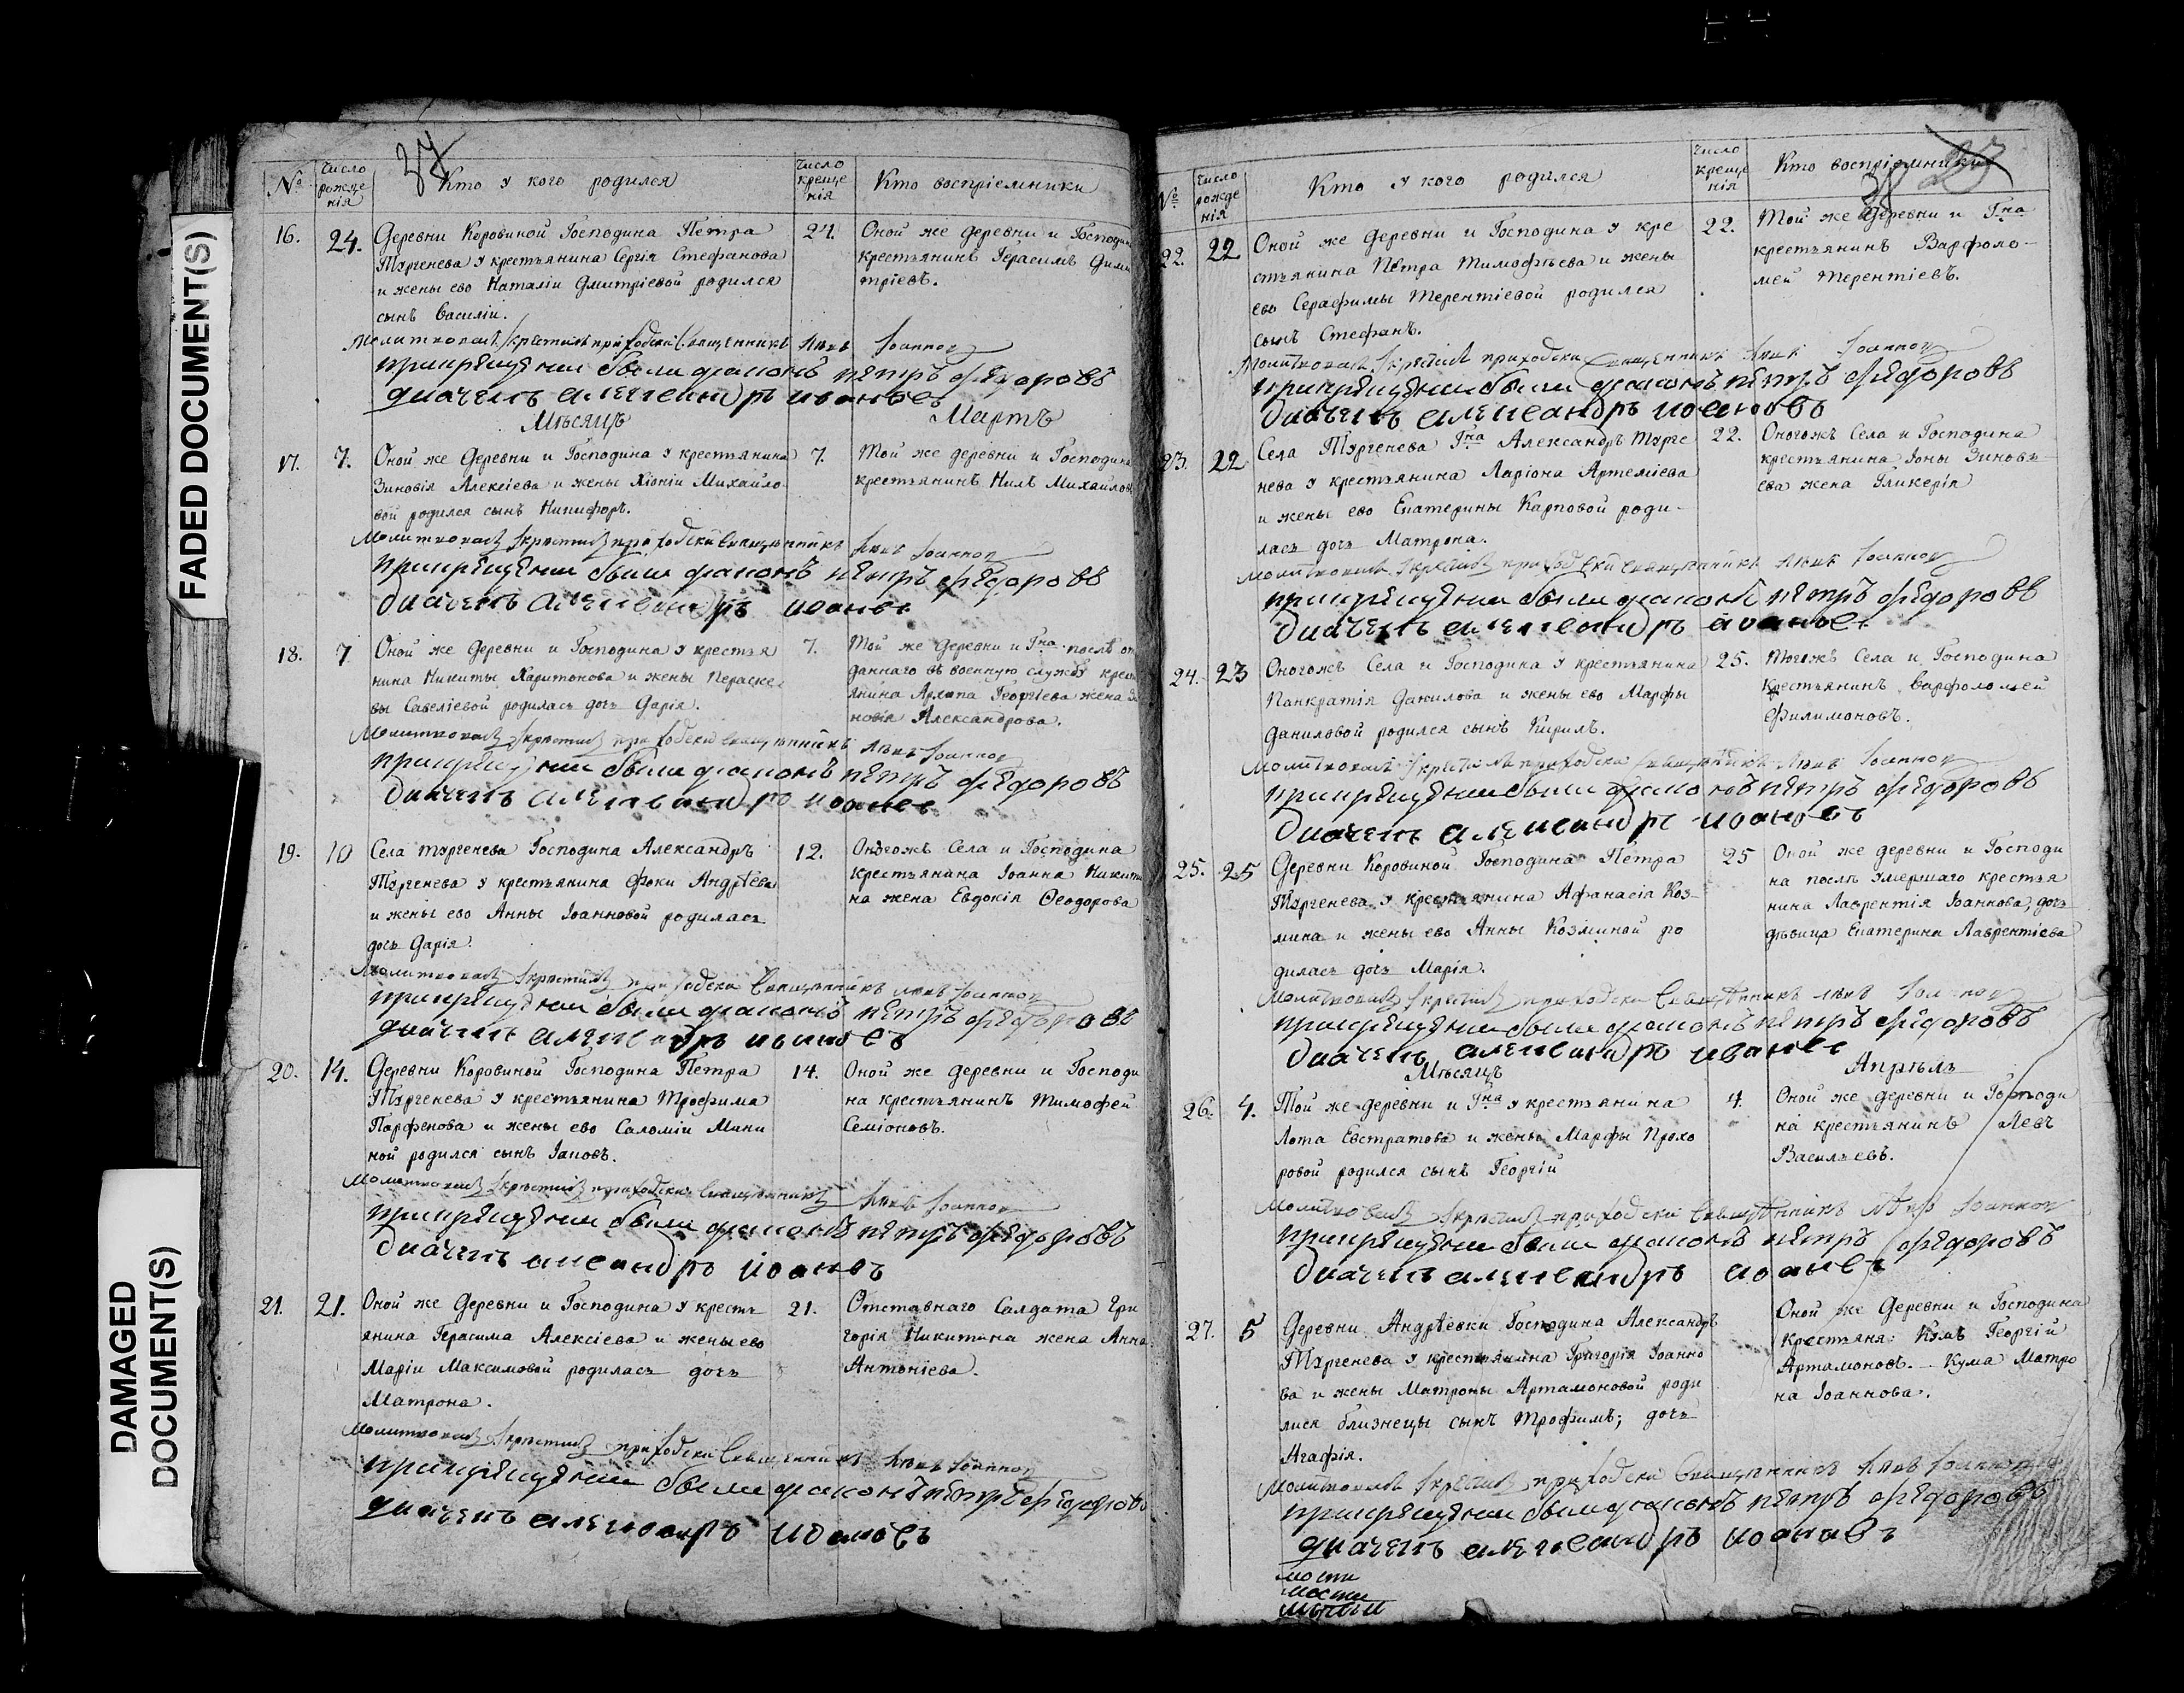 FADED DOCUMENT(S)
DAMAGED
DOCUMENT(S)
37
№
Число
рожде
нія
Кто у кого родился
Число
креще
нія
Кто воспріемники
16.
24.
Деревни Коровиной Господина Петра
Тургенева у крестьянина Сергія Стефанова
и жены ево Наталіи Дмитріевой родился
сынъ Василій.
24.
Оной же деревни и Господина
крестьянинъ Герасимъ Дими
тріевъ.
Молитвовалъ и крестилъ приходски Священникъ Левъ Іоаннов
прикрещении были диаконъ петръ федоровъ
диачекъ александръ иоановъ
Мѣсяцъ
Мартъ
17.
7.
Оной же Деревни и Господина у крестьянина
Зиновія Алексіева и жены Хіоніи Михайло
вой родился сынъ Никифоръ.
7.
Той же деревни и Господина
крестьянинъ Нилъ Михайловъ
Молитвовалъ и крестилъ приходски Священникъ Левъ Іоаннов
прикрещении были диаконъ петръ федоровъ
диачекъ александръ иоановъ
18.
7
Оной же Деревни и Господина у крестья
нина Никиты Харитонова и жены Параске
вы Савеліевой родилась дочь Дарія.
7.
Той же Деревни и Гна послѣ от
даннаго въ военную службу крестья
янина Архипа Георгіева жена Зи
новія Александрова.
Молитвовалъ и крестилъ приходски Священникъ Левъ Іоаннов
прикрещении были диаконъ петръ федоровъ
диачекъ александръ иоановъ
19.
10
Села Тургенева Господина Александръ
Тургенева у крестьянина Фоки Андрѣева
и жены ево Анны Іоанновой родилась
дочь Дарія.
12.
Оногожъ Села и Господина
крестьянина Іоанна Никити
на жена Евдокія Ѳеодорова
Молитвовалъ и крестилъ приходски Священникъ Левъ Іоаннов
прикрещении были диаконъ петръ федоровъ
диачекъ александръ иоановъ
20.
14.
Деревни Коровиной Господина Петра
Тургенева у крестьянина Трофима
Парфенова и жены ево Саломіи Мини
ной родился сынъ Іаковъ.
14.
Оной же деревни и Господи
на крестьянинъ Тимофей
Семіоновъ.
Молитвовалъ и крестилъ приходски Священникъ Левъ Іоаннов
прикрещении были диаконъ петръ федоровъ
диачекъ александръ иоановъ
21.
21.
Оной же Деревни и Господина у кресть
янина Герасима Алексіева и жены ево
Маріи Максимовой родилась дочь
Матрона.
21.
Отставнаго Солдата Гри
горія Никитина жена Анна
Антоніева.
Молитвовалъ и крестилъ приходски Священникъ Левъ Іоаннов
прикрещении были диаконъ петръ федоровъ
диачекъ александръ иоановъ
№
Число
рожде
нія
Кто у кого родился
Число
креще
нія
Кто воспріемники
38
22.
22
Оной же Деревни и Господина у кре
стьянина Петра Тимофѣева и жены
ево Серафимы Терентіевой родился
сынъ Стефанъ.
22.
Той же Деревни и Гна
крестьянинъ Варфоло-
мей Терентіевъ.
Молитвовалъ и крестилъ приходски Священникъ Левъ Іоаннов
прикрещении были диаконъ петръ федоровъ
диачекъ александръ иоановъ
23.
22
Села Тургенева Гна Александръ Турге
нева у крестьянина Ларіона Артеміева
и жены ево Екатерины Карповой роди-
лась дочь Матрона.
22.
Оногожъ Села и Господина
крестьянина Іоны Зиновь-
ева жена Гликерія
Молитвовалъ и крестилъ приходски Священникъ Левъ Іоаннов
прикрещении были диаконъ петръ федоровъ
диачекъ александръ иоановъ
24.
23
Оногожъ Села и Господина у крестьянина
Панкратія Данилова и жены ево Марфы
Даниловой родился сынъ Кирилъ.
25.
Тогожъ Села и Господина
Крестьянинъ Варфоломей
Филимоновъ.
Молитвовалъ и крестилъ приходски Священникъ Левъ Іоаннов
прикрещении были диаконъ петръ федоровъ
диачекъ александръ иоановъ
25.
25
Деревни Коровиной Господина Петра
Тургенева у крестьянина Афанасія Коз-
мина и жены ево Анны Козминой ро
дилась дочь Марія.
25
Оной же деревни и Господи
на послѣ умершаго крестья
нина Лаврентія Іоаннова, дочь
дѣвица Екатерина Лаврентіева
Молитвовалъ и крестилъ приходски Священникъ Левъ Іоаннов
прикрещении были диаконъ петръ федоровъ
диачекъ александръ иоановъ
Мѣсяцъ
Апрѣль
26.
4.
Той же деревни и Гна у крестьянина
Лота Евстратова и жены Марфы Прохо
ровой родился сынъ Георгій
4.
Оной же деревни и Господи
на крестьянинъ Левъ
Васильевъ.
Молитвовалъ и крестилъ приходски Священникъ Левъ Іоаннов
прикрещении были диаконъ петръ федоровъ
диачекъ александръ иоановъ
27.
5
Деревни Андрѣевки Господина Александръ
Тургенева у крестьянина Григорія Іоанно
ва и жены Матроны Артамоновой роди
лися близнецы сынъ Трофимъ; дочь
Агафія.
Оной же Деревни и Господина
крестьяня: Кумъ Георгій
Артамоновъ. Кума Матро
на Іоаннова.
Молитвовалъ и крестилъ приходски Священникъ Левъ Іоаннов
прикрещении были диаконъ петръ федоровъ
диачекъ александръ иоановъ